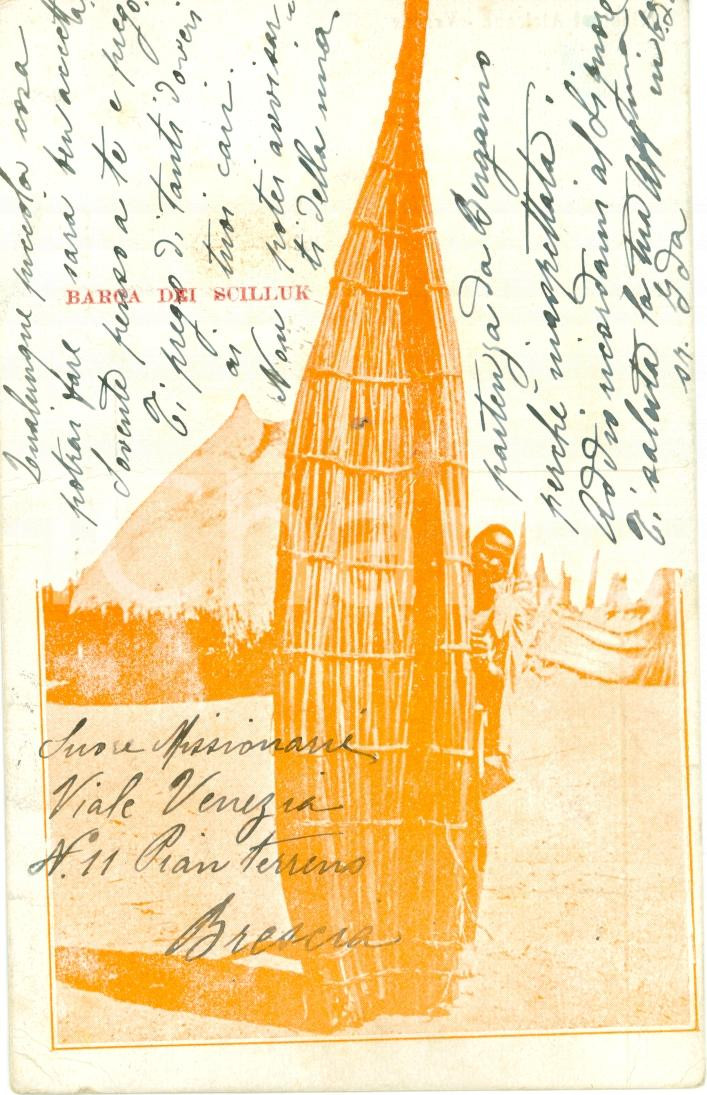 Qualunque piccola cosa
potrai fare sarà ben accetta
Sovente penso a te e prego.
Ti prego di tanti doveri
ai tuoi cari.
Non potei avvisar
ti della mia
partenza da Bergamo
perché inaspettata.
Addio ricordami al Signore
Ti saluta la tua
sr. Ida
BARCA DEI SCILLUK
Suore Missionarie
Viale Venezia
N. 11 Pian terreno
Brescia